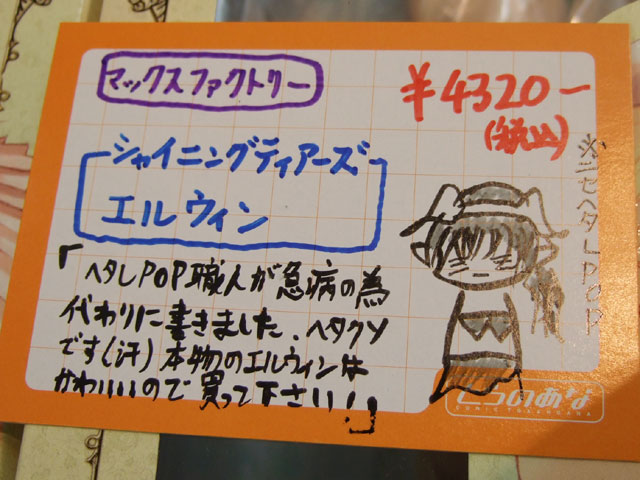 マックスファクトリー
¥4320ー
(税込)
シャイニングティアーズ
エルウィン
「ヘタレPOP職人が急病の為
代わりに書きました、ヘタクソ
です(汗)本物のエルウィンは
かわいいので買って下さい!」
※ニセヘタレPOP
とらのあな
COMIC TORANOANA